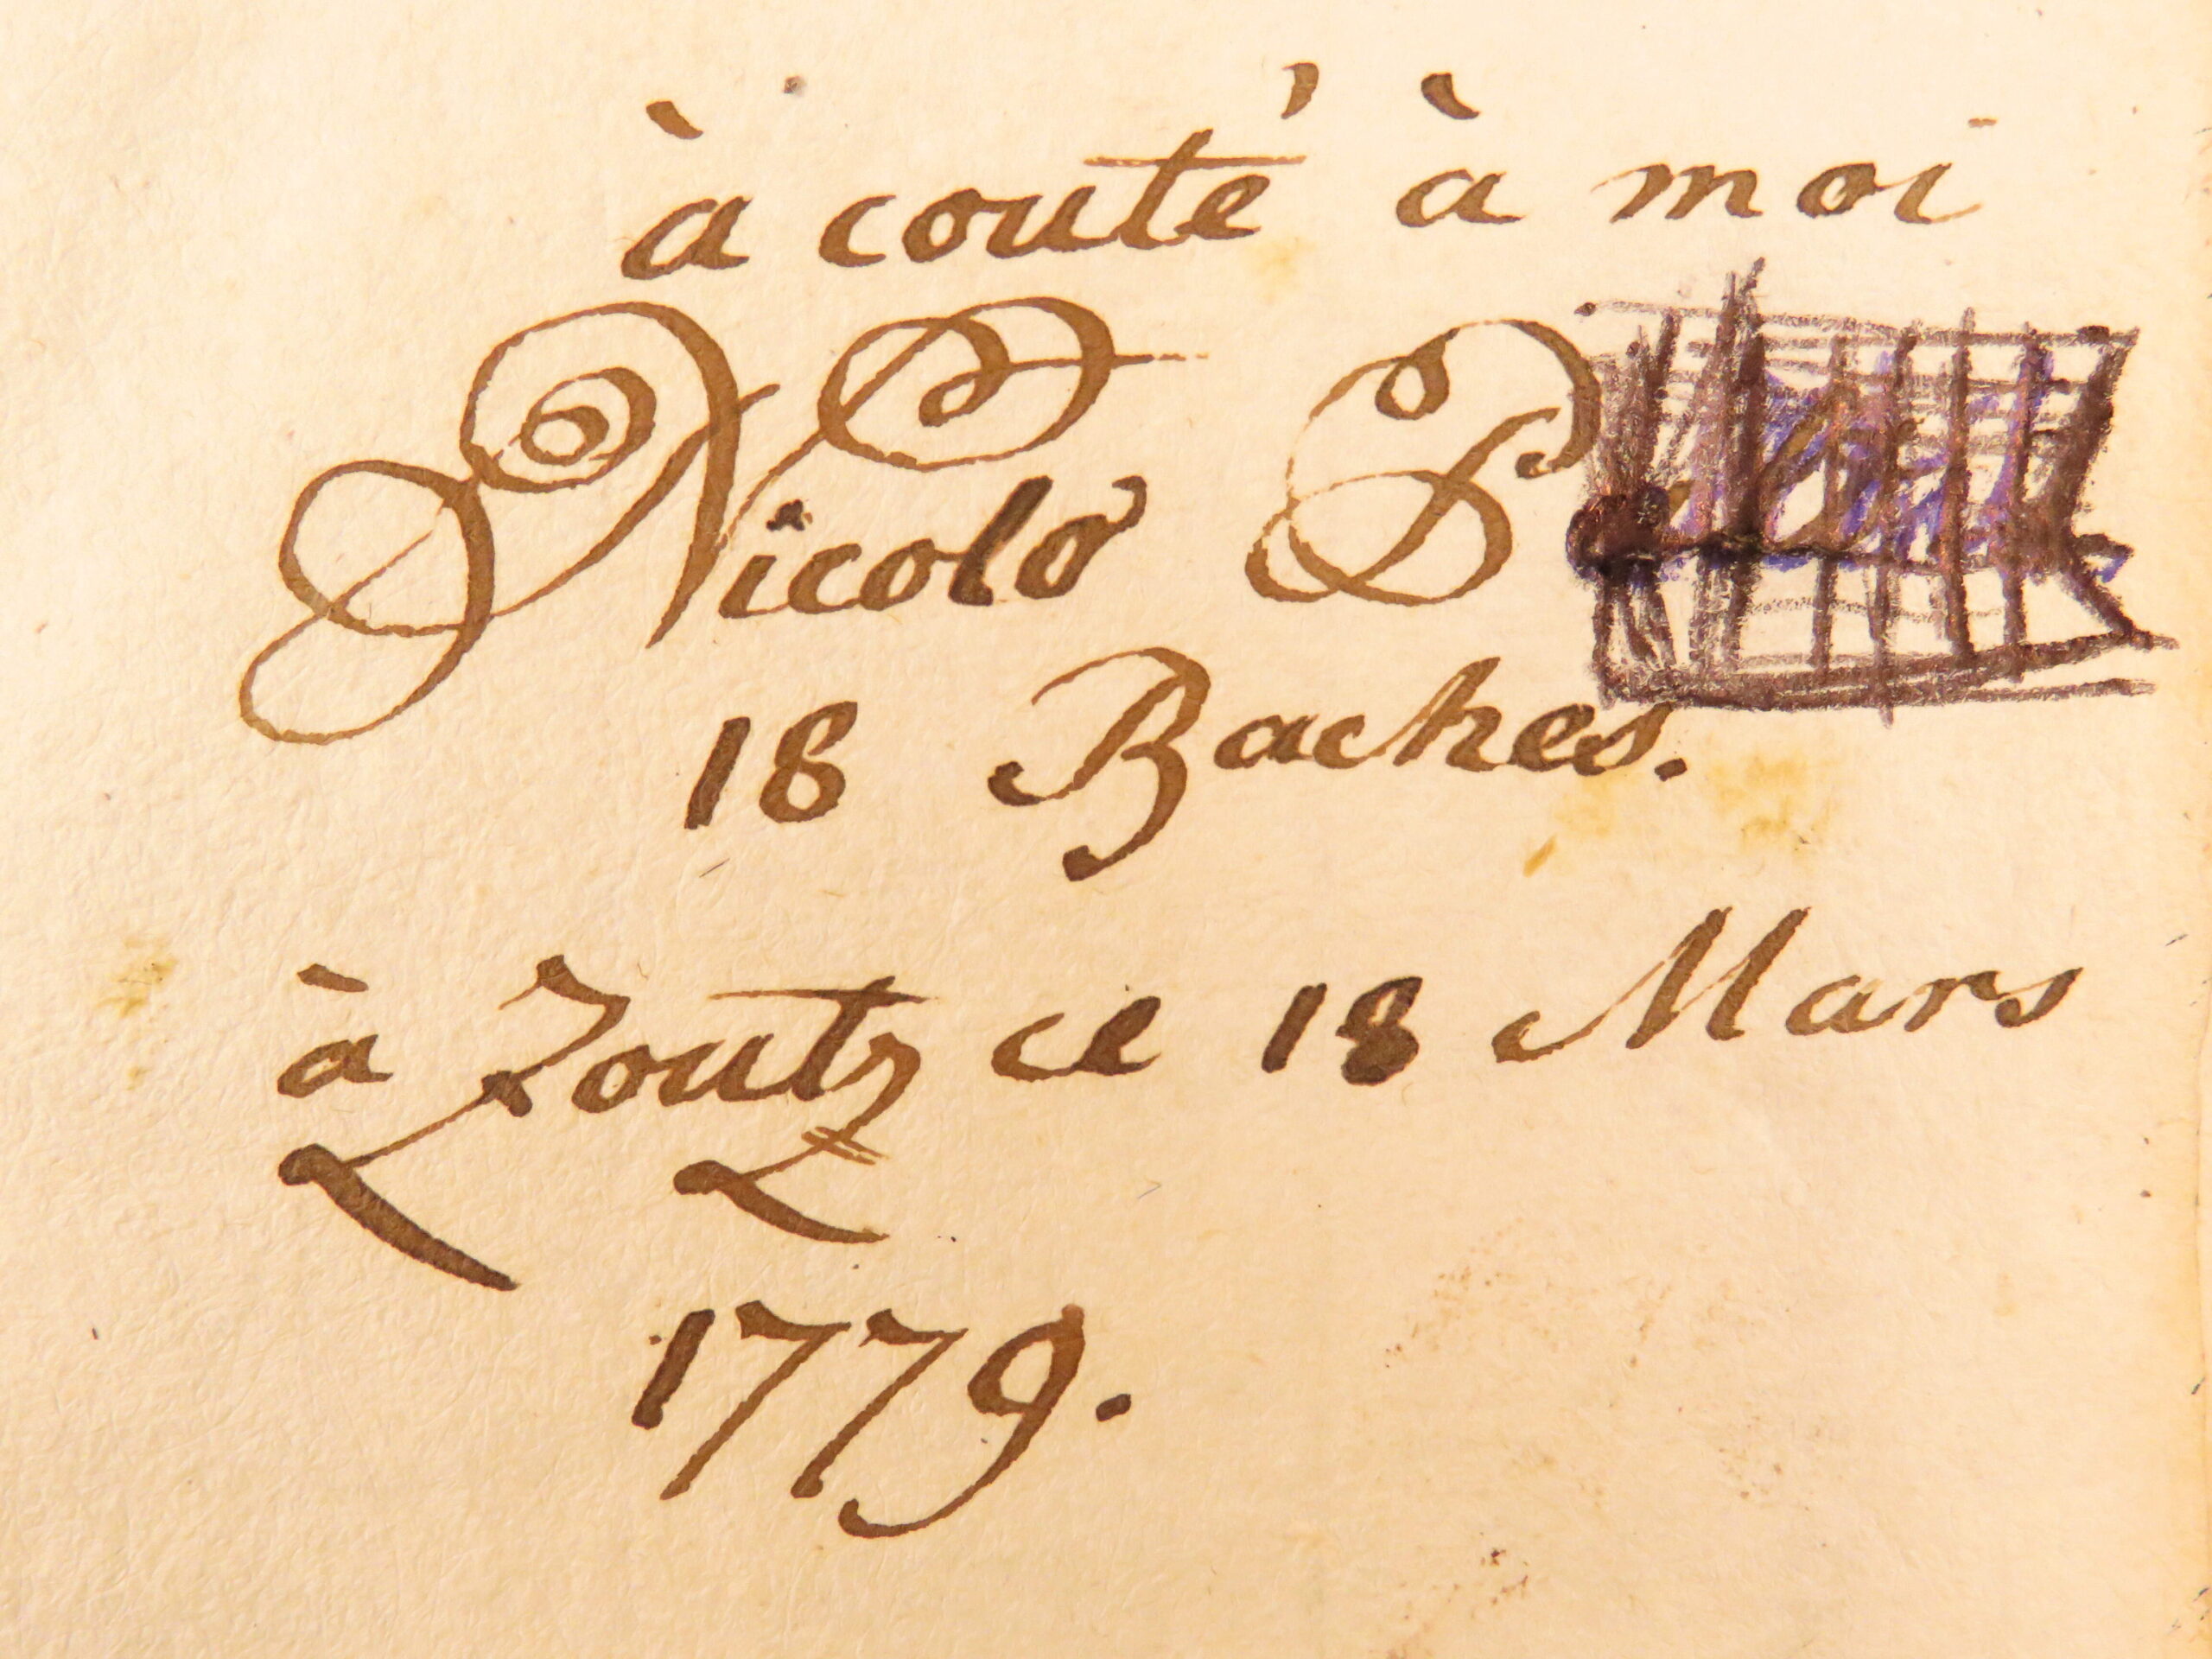 à couté à moi
Nicolo P
18 Baches.
à Zoutz ce 18 Mars
1779.